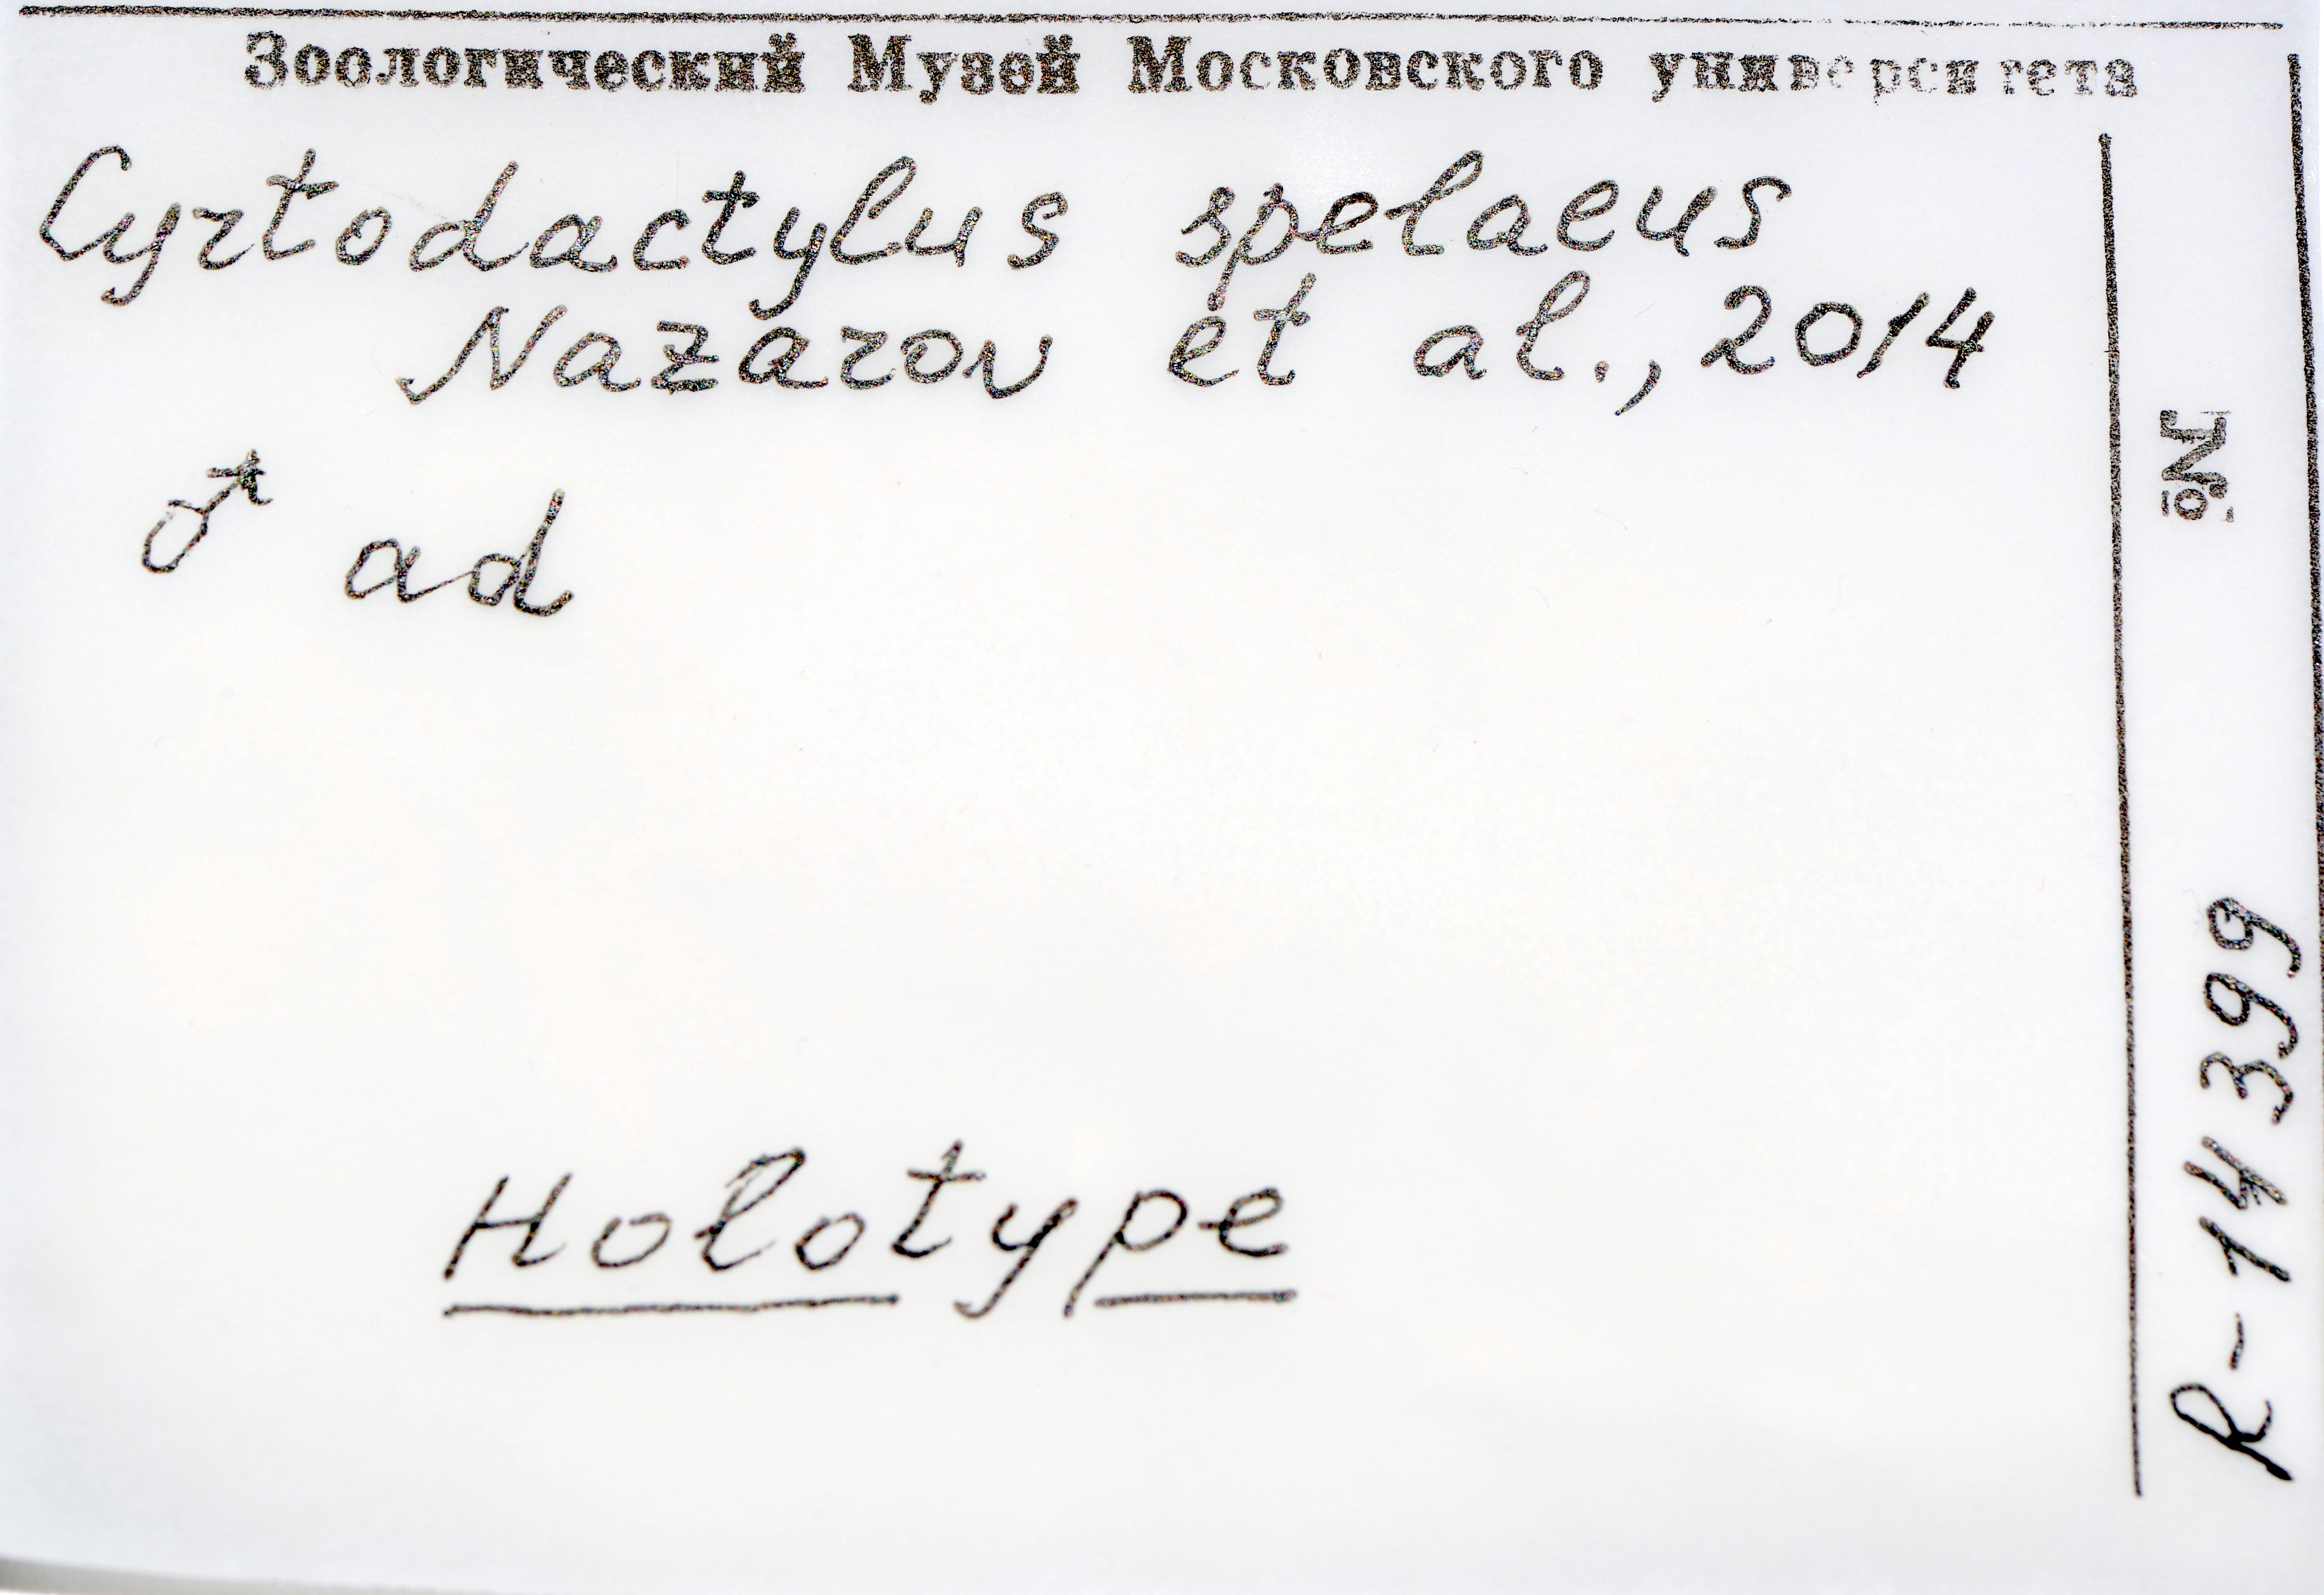 Зоологический Музей Московского университета
Cyrtodactylus spelaeus
Nazarov et al., 2014
♂ ad
Holotype
№ R-14399